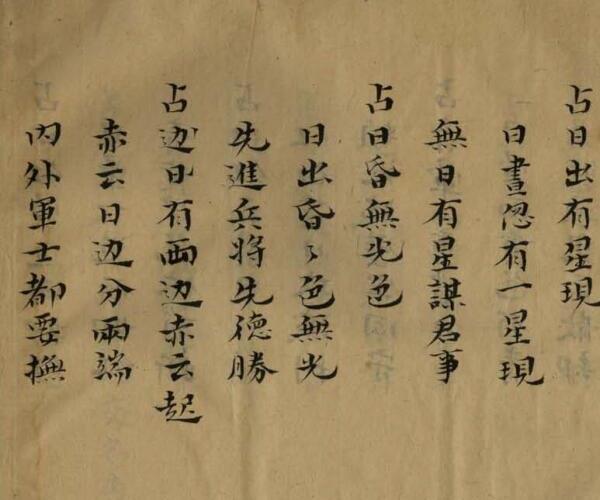 占日出有星現
日晝忽有一星現
無日有星謀君事
占日昏無光色
日出昏〻色無光
先進兵將先德勝
占边日有両边赤云起
赤云日边分兩端
内外軍士都要撫